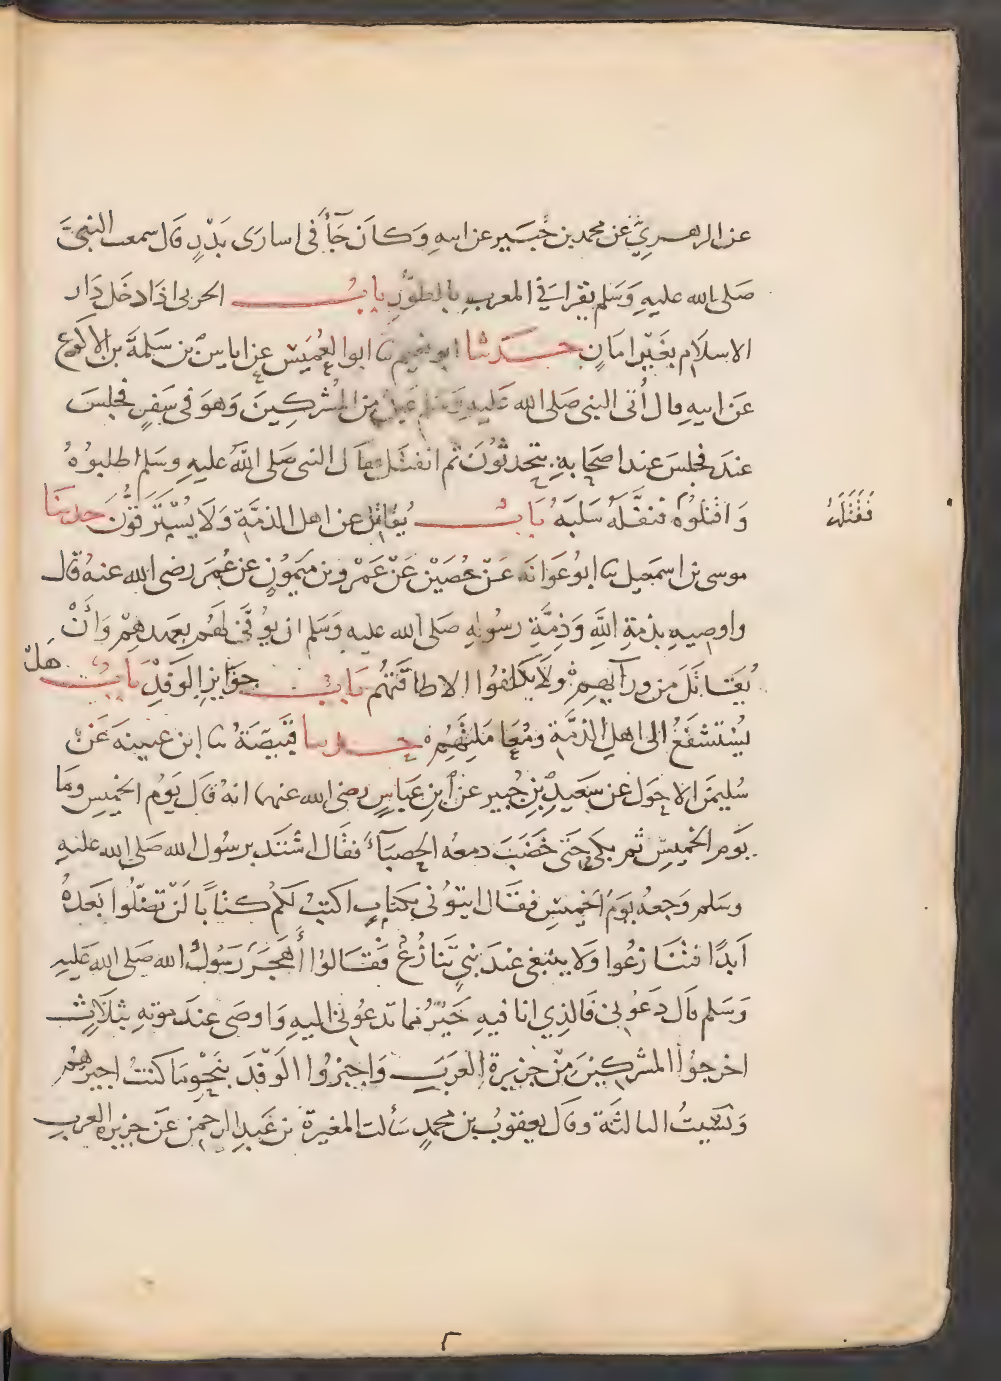 عن الزهري عن محمد بن جبير عن ابيه وكان جاء في اسارى بدر قال سمعت النبي
صلى الله عليه وسلم يقرا في المغرب بالطور باب الحربى اذا دخل دار
الاسلام بغير امان حدثنا ابو نعيم ثنا ابو العميس عن اياس بن سلمة بن الاكوع
عن ابيه قال أتى النبى صلى الله عليه وسلم عين من المشركين وهو في سفر فجلس
عند فجلس عند اصحابه يتحدثون ثم انفتل فقال النبى صلى الله عليه وسلم اطلبوه
واقتلوه فنفله سلبه باب يقاتل عن اهل الذمة ولا يسترقون حدثنا
فقتله
موسى بن اسمعيل ثنا ابو عوانة عن حصين عن عمرو بن ميمون عن عمر رضى الله عنه قال
واوصيه بذمة الله وذمة رسوله صلى الله عليه وسلم ان يوفى لهم بعهدهم وأن
يقاتل من ورآيهم ولا يكلفوا الا طاقتهم باب جوايز الوفد باب هل
يستشفع الى اهل الذمة ومعاملتهم حدثنا قبيصة ثنا ابن عيينه عن
سليمن الاحول عن سعيد بن جبير عن ابن عباس رضى الله عنهما انه قال يوم الخميس وما
يوم الخميس ثم بكى حتى خضب دمعه الحصبآء فقال اشتد برسول الله صلى الله عليه
وسلم وجعه يوم الخميس فقال ايتونى بكتاب اكتب لكم كتابا لن تضلوا بعده
ابدا فتنازعوا ولا ينبغى عند نبي تنازع فقالوا أهجر رسول الله صلى الله عليه
وسلم قال دعونى فالذي انا فيه خير مما تدعونى اليه واوصى عند موته بثلاث
اخرجوا المشركين من جزيرة العرب واجيزوا الوفد بنحو ما كنت اجيزهم
ونسيت الثالثة وقال يعقوب بن محمد سألت المغيرة بن عبد الرحمن عن جزيرة العرب
٢